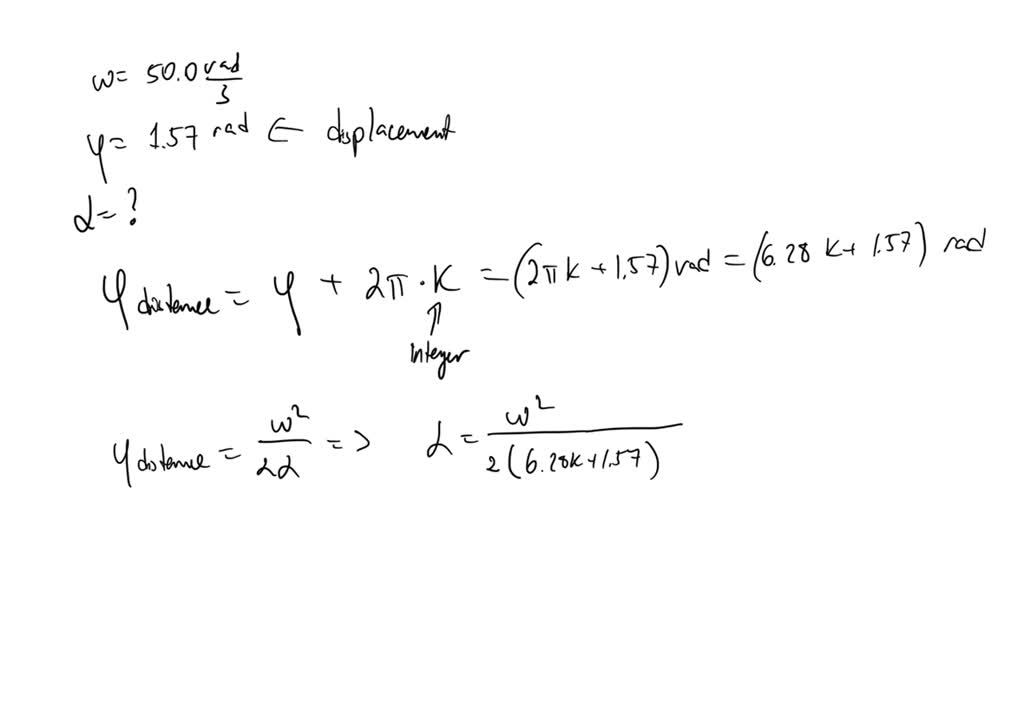 ω= 50.0 rad/s
φ= 1.57 rad ← displacement
α=?
φ distance = φ + 2π·K = (2πK + 1.57) rad = (6.28 K + 1.57) rad
↑
integer
φ distance = ω²/2α => α = ω²/2(6.28K+1.57)